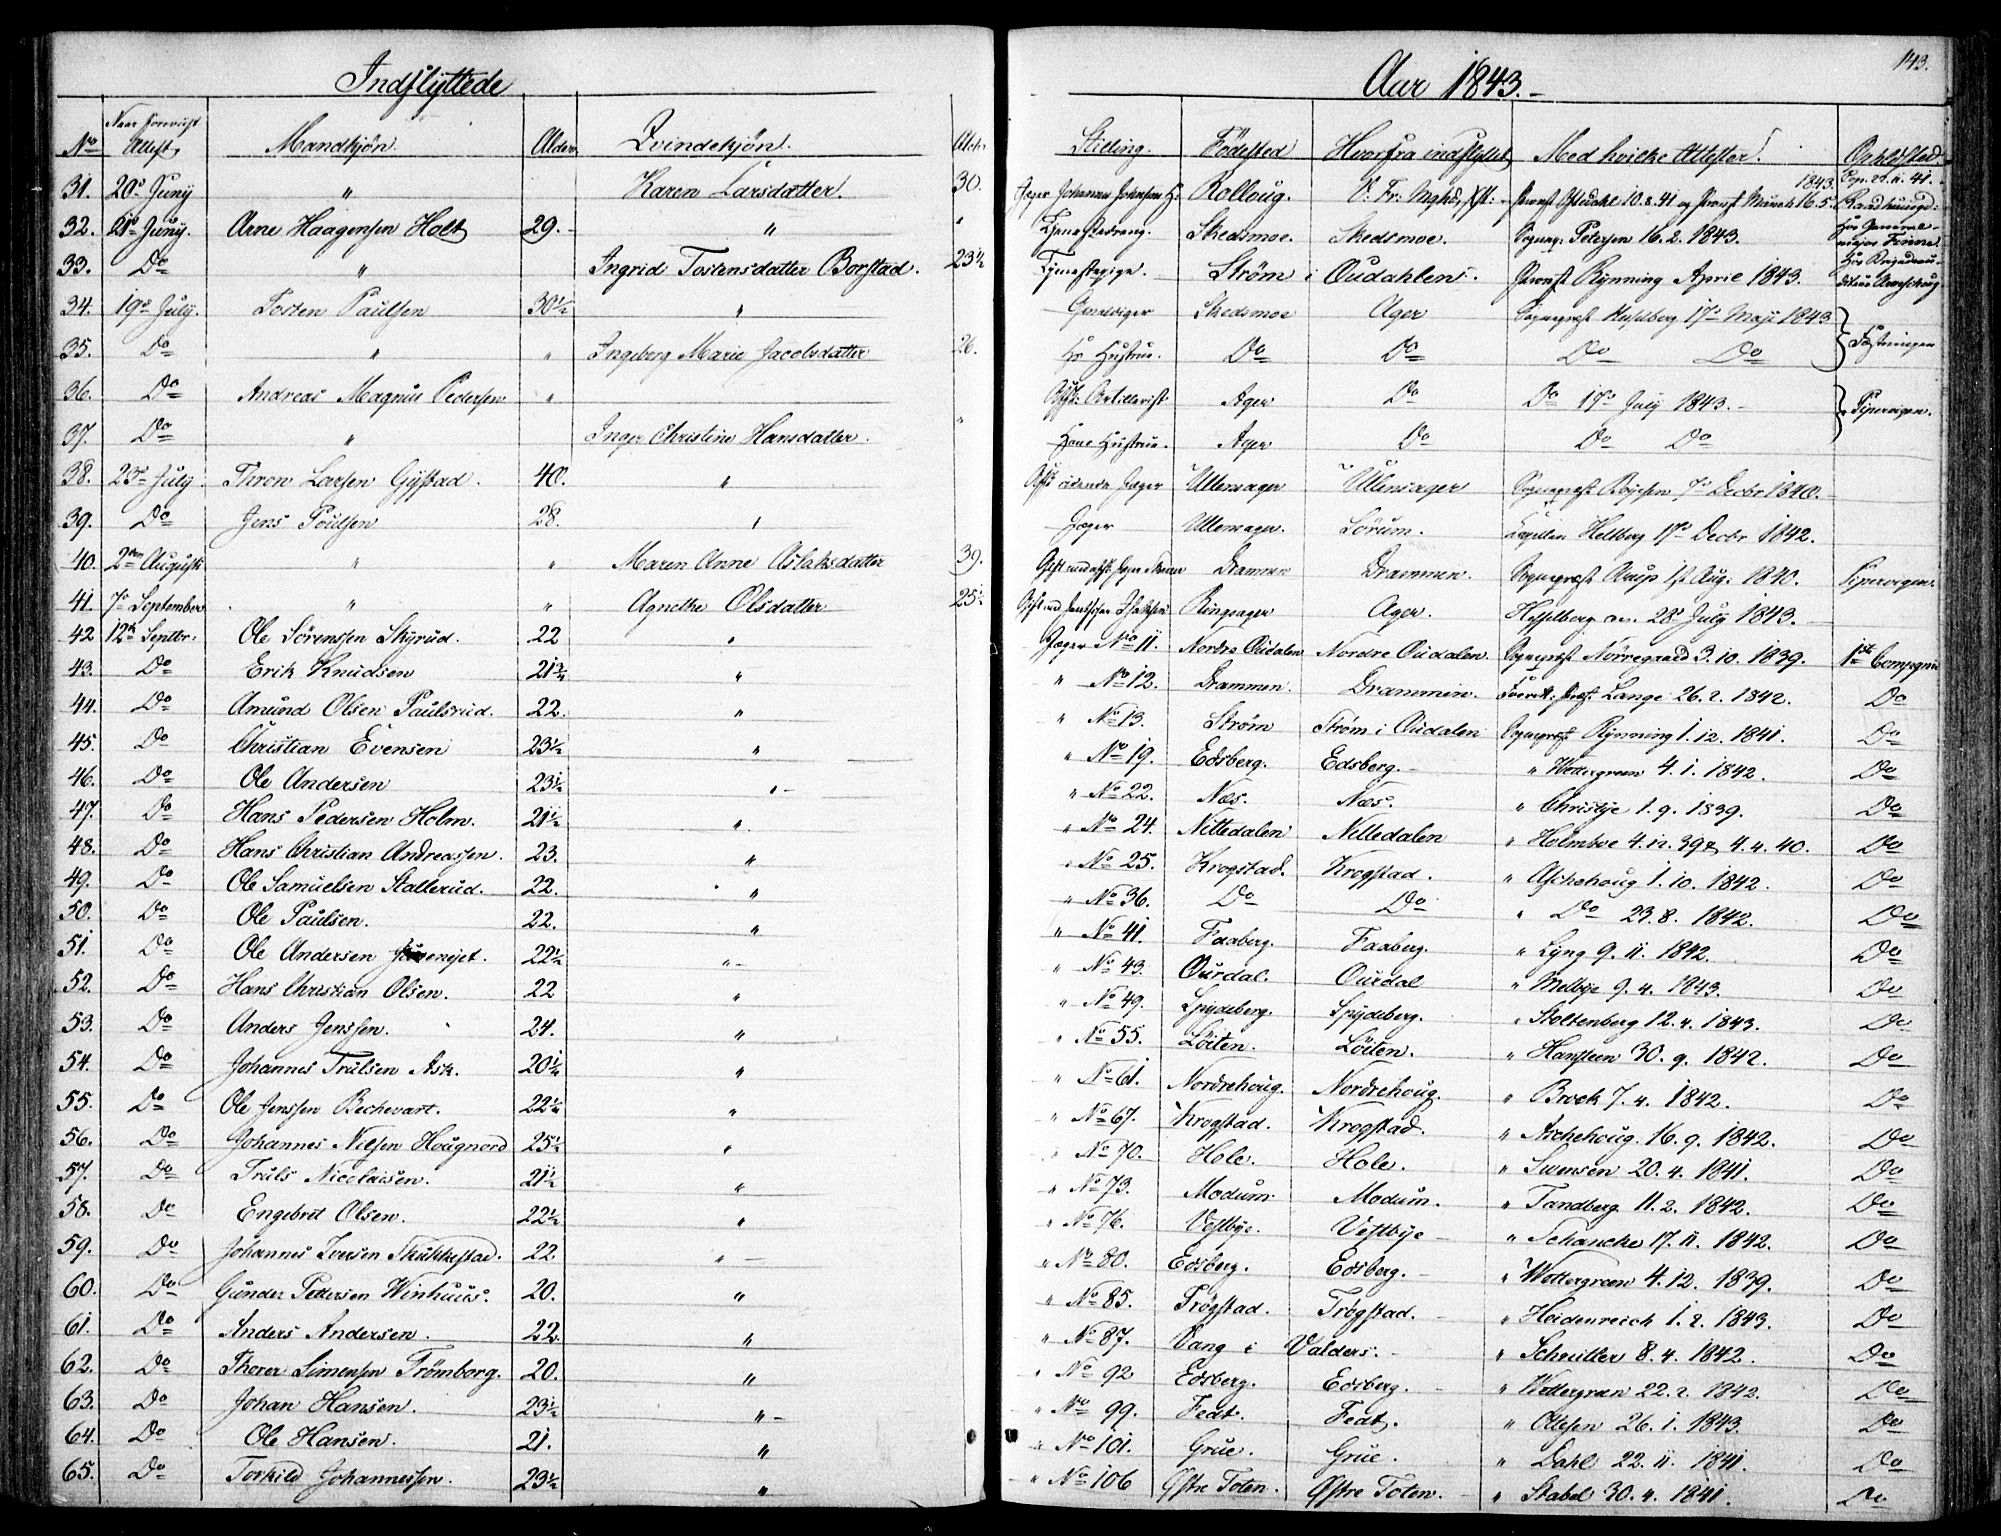 Indflyttede
Aar 1843.-
143.
No Attest, Mandkjön. Alder. Qvindekjön. Alder
Stilling. Födested Hvorfra indflyttet Med hvilke Attester. Opholdssted
31. 20de Juny " Karen Larsdatter. 30. Rolloug.
32. 21de Juny. Arne Haagensen Holt 29.- " Skedsmoe. Skedsmoe. Sognepr: Petersen 16.2.1843. Hos General-major Finne
33. Do " Ingrid Tostensdatter Borstad. 23 1/2 Tjenestepige. Ström i Oudahlen. Provst Rynning April 1843.
34. 19de July. Tosten Paulsen 30 1/2 " Skedsmoe Ager 17de Maji 1843 Fæstningen
35. Do " " Ingeborg Marie Jacobsdatter 26. Hs Hustrue. Do Do Do Do
36. Do Andreas Magnus Pedersen " Artillerist Ager Do Do 17de July 1843.- Pipervigen.
37. Do " Inger Christine Hansdatter. " Hans Hustrue. Ager Do Do Do
38. 23de July Thron Larsen Gystad. 40. " ridende Jæger Ullensager Ullensager Sognepræst Boysen 7de Decbr 1840.
39. Do Jens Poulsen 28. " Jæger Ullensager. Sörum. Capellan Heltberg 17de Decbr 1842.
40. 2den August " " Maren Anne Aslaksdatter 39. Drammen Drammen. Sognepræst Aarup 1st Aug: 1840. Pipervigen.
41. 7de September " " Agnethe Olsdatter 25 1/2 Ringsager Ager. Hesselberg 28de July 1843.
42 12te Septbr: Ole Sörensen Skyrud. 22 " Jæger No 11. Nordre Oudalen Nordre Oudalen. Sognepræst Nörregaard 3.10.1839. 1ste Compagnie
43. Do Erik Knudsen 21 3/4 " " No 12. Drammen. Drammen. Lange 26.2.1842. Do
44. Do Amund Olsen Paulsrud. 22. " " No 13. Ström Ström i Oudalen Sognepræst Rynning 1.12.1841. Do
45. Do Christian Evensen 23 1/2 " " No 19. Edsberg. Edsberg.- " Wettergreen 4.1.1842. Do
46. Do Ole Andersen 23 1/2 "- " No 22. Næs. Næs. " Christije 1.9.1839. Do
47. Do Hans Pedersen Holm. 21 1/2 " " No 24. Nittedalen Nittedalen " Holmboe 4.12.39 & 4.4.40. Do
48. Do Hans Christian Andreassen. 23. " " No 25. Krogstad. Krogstad. " Aschehoug 1.10.1842. Do
49. Do Ole Samuelsen Stallerud. 22. " " No 36. Do Do " Do 23.8.1842. Do
50. Do Ole Paulsen. 22. " " No 41. Faaberg. Faaberg. " Lyng 9.11.1842. Do
51. Do Ole Andersen 22 1/2 "- " No 43. Ourdal. Ourdal " Melbye 9.4.1843. Do
52. Do Hans Christian Olsen. 22 " " No 49. Spydeberg. Spydeberg. " Stoltenberg 12.4.1843. Do
53. Do Anders Jenssen. 24. " " No 55. Löiten. Löiten. " Hansteen 30.9.1842. Do
54. Do Johannes Trulsen Ask. 20 1/4 " " No 61. Nordrehoug. Nordrehoug. " Brock 7.4.1842. Do
55. Do Ole Jenssen Bechevart. 22 1/4 " " No 67. Krogstad. Krogstad. " Aschehoug 16.9.1842. Do
56. Do Johannes Nilsen Hougnord 25 1/2 " " No 70. Hole. Hole. " Svensen 20.4.1841. Do
57. Do Truls Nicolaisen. 21 1/2 " " No 73. Modum. Modum. " Tandberg 11.2.1842. Do
58. Do Engebret Olsen. 22 1/2 " " No 76. Vestbye. Vestbye " Schancke 17.11.1842. Do
59. Do Johannes Iversen 22. "- " No 80. Edsberg. Edsberg. " Wettergreen 4.12.1839. Do
60. Do Gunder Pettersen Winhuus. 20. " " No 85. Trögstad. Trögstad. " Heidenreich 1.2.1843. Do
61. Do Anders Andersen. 22. " " No 87. Vang i Valders. " Schnitler 8.4.1842. Do
62. Do Thorer Simensen Trömborg. 20. " " No 92 Edsberg. Edsberg. " Wettergreen 22.2.1842. Do
63. Do Johan Hansen. 23 1/2 "- " No 99. Fedt. Fedt. " Ottesen 26.1.1843. Do
64. Do Ole Hansen. 21. " " No 101. Grue. Grue. " Dahl 22.11.1841. Do
65. Do Torkild Johannessen. 23 1/2 " " No 106 Östre Toten. Östre Toten. " Stabel 30.4.1841. Do